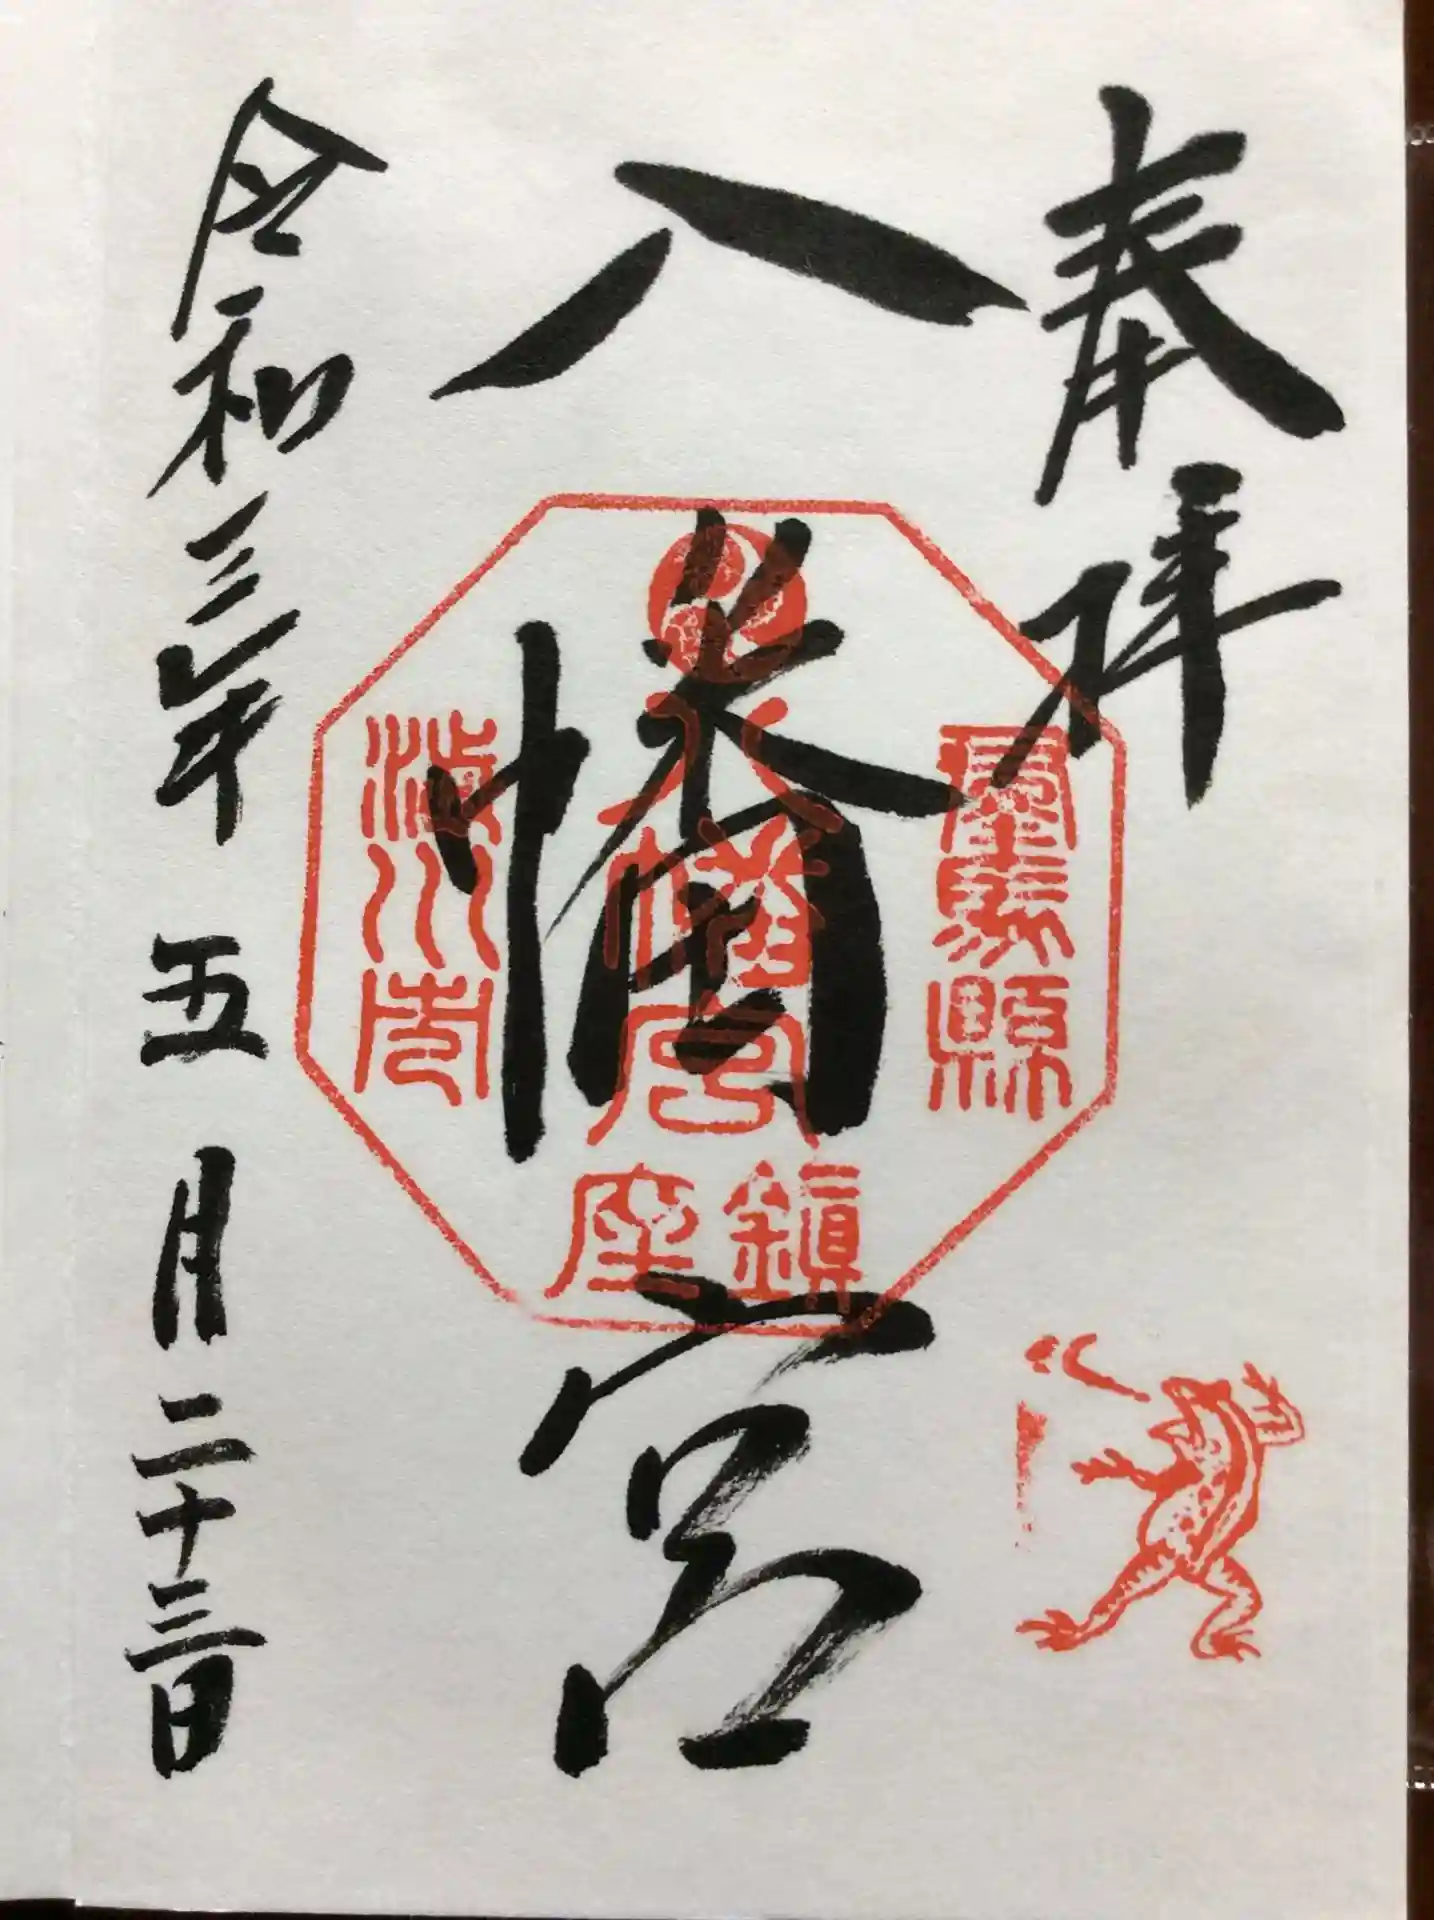 奉拝
八幡宮
令和三年 五月二十三日
羣馬縣
八幡宮
渋川市
鎮座